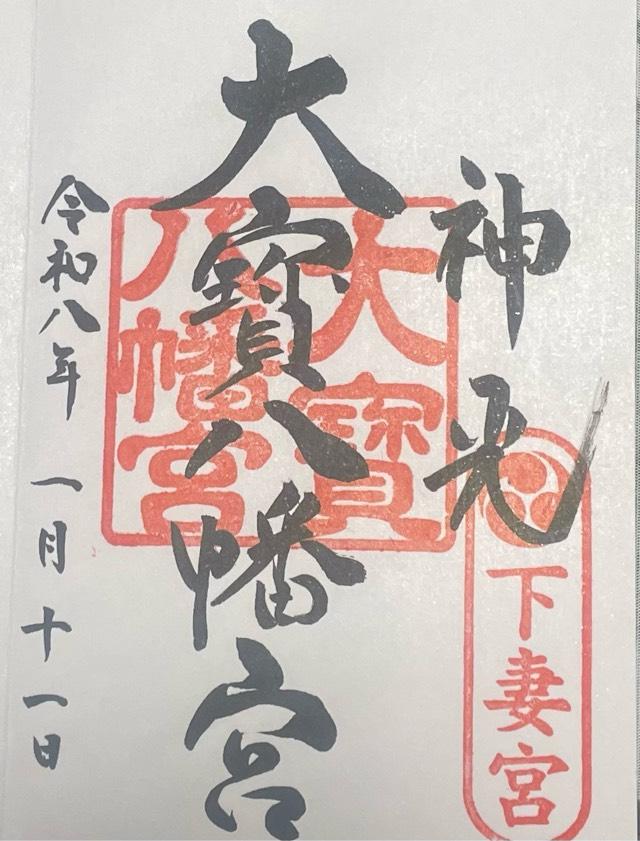 神光
下妻宮
大寳八幡宮
大寳八幡宮
令和八年 一月十一日